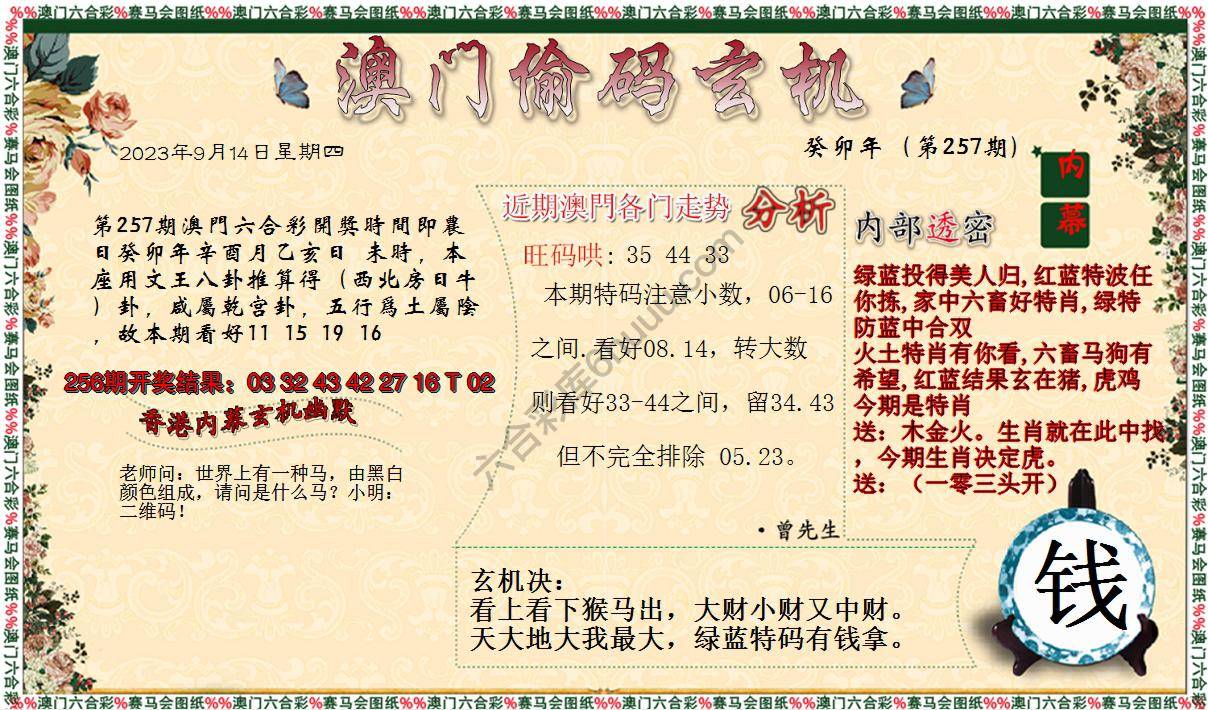 %%澳门六合彩%赛马会图纸%%澳门六合彩%赛马会图纸%%澳门六合彩%赛马会图纸%%澳门六合彩%赛马会图纸%%澳门六合彩%赛马会图纸%%澳门六合彩%赛马会图纸%
澳门偷码玄机
2023年9月14日星期四
癸卯年（第257期）
内幕
第257期澳門六合彩開獎時間即農
日癸卯年辛酉月乙亥日 未時，本
座用文王八卦推算得（西北房日牛
）卦，咸屬乾宫卦，五行爲土屬陰
，故本期看好11 15 19 16
256期开奖结果：03 32 43 42 27 16 T 02
香港内幕玄机幽默
老师问：世界上有一种马，由黑白
颜色组成，请问是什么马？小明：
二维码！
近期澳門各门走势 分析
旺码哄: 35 44 33
本期特码注意小数，06-16
之间.看好08.14，转大数
则看好33-44之间，留34.43
但不完全排除 05.23。
·曾先生
内部透密
绿蓝投得美人归,红蓝特波任
你拣,家中六畜好特肖,绿特
防蓝中合双
火土特肖有你看,六畜马狗有
希望,红蓝结果玄在猪,虎鸡
今期是特肖
送：木金火。生肖就在此中找
，今期生肖决定虎。
送：（一零三头开）
玄机决：
看上看下猴马出，大财小财又中财。
天大地大我最大，绿蓝特码有钱拿。
钱